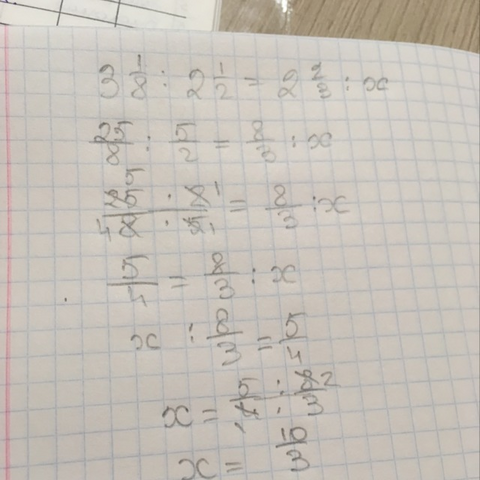 3 1/8 : 2 1/2 = 2 2/3 : x
25/8 : 5/2 = 8/3 : x
25 5/8 4 : 2 1/5 1 = 8/3 : x
5/4 = 8/3 : x
x : 8/3 = 5/4
x = 5/4 : 8 2/3
x = 10/3